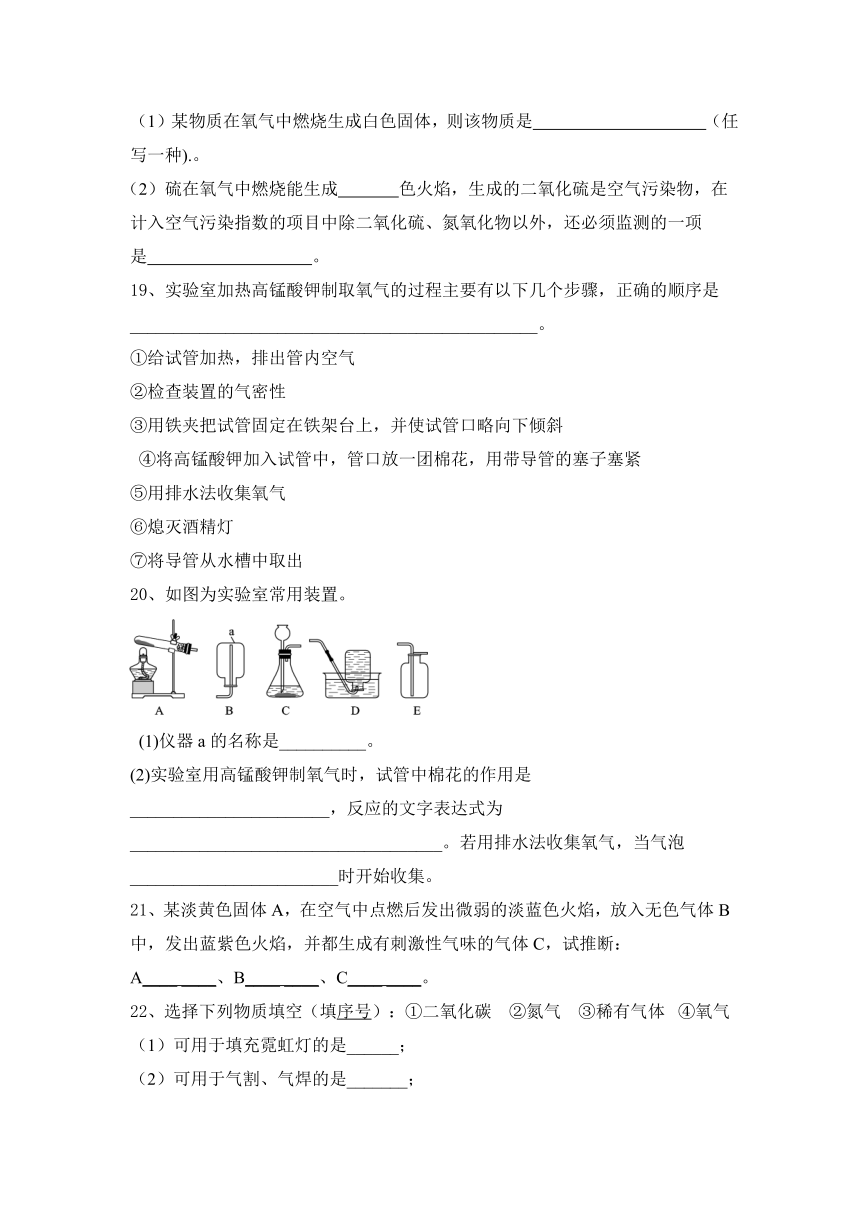 （1）某物质在氧气中燃烧生成白色固体，则该物质是____________________（任
写一种).。
（2）硫在氧气中燃烧能生成_______色火焰，生成的二氧化硫是空气污染物，在
计入空气污染指数的项目中除二氧化硫、氮氧化物以外，还必须监测的一项
是___________________。
19、实验室加热高锰酸钾制取氧气的过程主要有以下几个步骤，正确的顺序是
_______________________________________________。
①给试管加热，排出管内空气
②检查装置的气密性
③用铁夹把试管固定在铁架台上，并使试管口略向下倾斜
④将高锰酸钾加入试管中，管口放一团棉花，用带导管的塞子塞紧
⑤用排水法收集氧气
⑥熄灭酒精灯
⑦将导管从水槽中取出
20、如图为实验室常用装置。
a
A B C D E
(1)仪器 a 的名称是__________。
(2)实验室用高锰酸钾制氧气时，试管中棉花的作用是
_______________________，反应的文字表达式为
____________________________________。若用排水法收集氧气，当气泡
________________________时开始收集。
21、某淡黄色固体 A，在空气中点燃后发出微弱的淡蓝色火焰，放入无色气体 B
中，发出蓝紫色火焰，并都生成有刺激性气味的气体 C，试推断：
A________、B________、C________。
22、选择下列物质填空（填序号）：①二氧化碳 ②氮气 ③稀有气体 ④氧气
（1）可用于填充霓虹灯的是______；
（2）可用于气割、气焊的是_______；